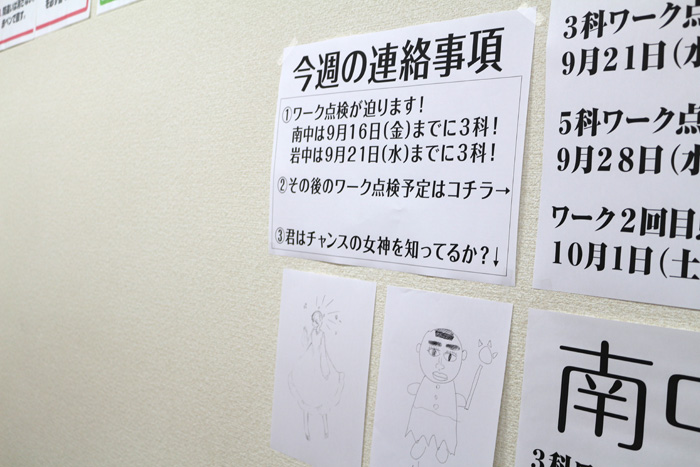 今週の連絡事項
①ワーク点検が迫ります!
南中は9月16日(金)までに3科!
岩中は9月21日(水)までに3科!
②その後のワーク点検予定はコチラ→
③君はチャンスの女神を知ってるか?↓
3科ワーク点
9月21日(水
5科ワーク点
9月28日(水
ワーク2回目
10月1日(土
南中
3科ワーク